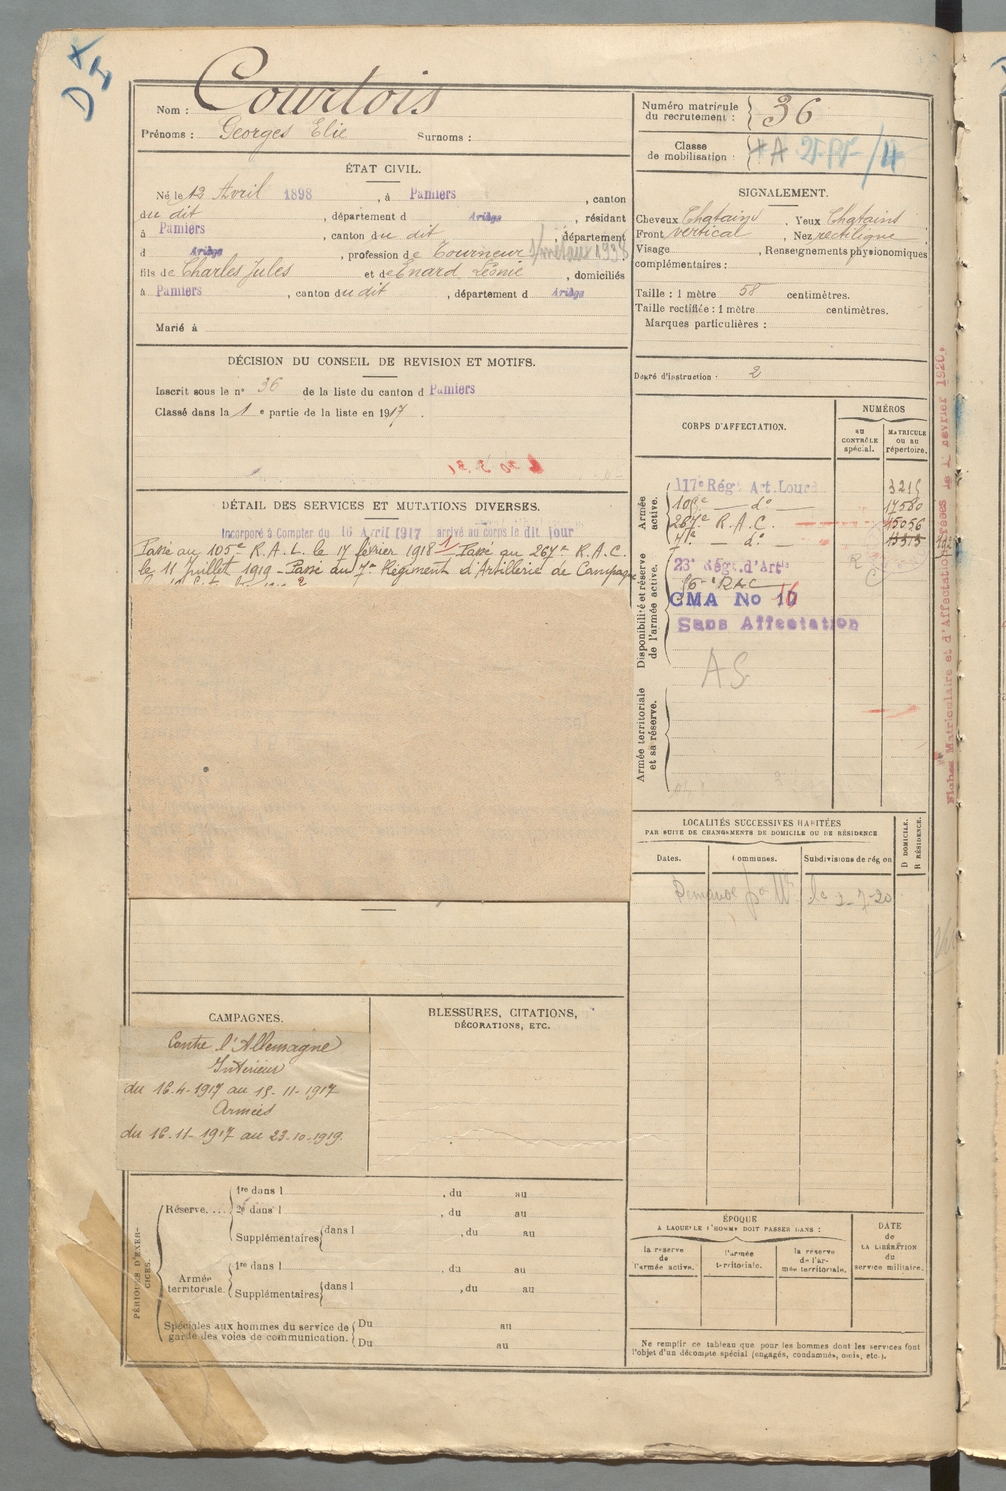 Nom : Courtois
Prénoms : Georges Elie Surnoms :
Numéro matricule du recrutement : 36
Classe de mobilisation :
ÉTAT CIVIL.
Né le 13 Avril 1898, à Pamiers, canton
du dit, département d Ariège, résidant
à Pamiers, canton du dit, département
d Ariège, profession de Tourneur s/métaux 1938
fils de Charles Jules et de Enard Léonie, domiciliés
à Pamiers, canton du dit, département d Ariège
Marié à
SIGNALEMENT.
Cheveux Chatains, Yeux Chatains
Front vertical, Nez rectiligne
Visage, Renseignements physionomiques
complémentaires :
Taille : 1 mètre 58 centimètres.
Taille rectifiée : 1 mètre centimètres.
Marques particulières :
Degré d'instruction : 2
DÉCISION DU CONSEIL DE REVISION ET MOTIFS.
Inscrit sous le n° 36 de la liste du canton d Pamiers
Classé dans la 1e partie de la liste en 1917.
DÉTAIL DES SERVICES ET MUTATIONS DIVERSES.
Incorporé à Compter du 16 Avril 1917 arrivé au corps le dit jour
Passé au 105e R.A.L. le 17 février 1918 - Passé au 267e R.A.C.
le 11 Juillet 1919 - Passé au 7e Régiment d'Artillerie de Campagne
CORPS D'AFFECTATION.
NUMÉROS
AU CONTRÔLE spécial.
MATRICULE ou au répertoire.
Armée active.
117e Rég. Art. Lourd 3215
d° 17580
267e R.A.C. 15056
d°
Disponibilité et réserve de l'armée active.
23e Rég. d'Art
CMA No 16
Sans Affectation
AS
Armée territoriale et sa réserve.
Fiches Matriculaire et d'Affectation février 1920.
LOCALITÉS SUCCESSIVES HABITÉES
PAR SUITE DE CHANGEMENTS DE DOMICILE OU DE RÉSIDENCE
Dates.
Communes.
Subdivisions de région
D DOMICILE.
R RÉSIDENCE.
Demandé le 2-7-20
CAMPAGNES.
Contre l'Allemagne
Intérieur
du 16-4-1917 au 15-11-1917
Armées
du 16-11-1917 au 23-10-1919.
BLESSURES, CITATIONS,
DÉCORATIONS, ETC.
PÉRIODES D'EXERCICES.
Réserve....
1re dans l , du au
2e dans l , du au
Supplémentaires dans l , du au
Armée territoriale.
1re dans l , du au
Supplémentaires dans l , du au
Spéciales aux hommes du service de garde des voies de communication.
Du au
Du au
ÉPOQUE
A LAQUELLE L'HOMME DOIT PASSER DANS :
la réserve de l'armée active.
l'armée territoriale.
la réserve de l'armée territoriale.
DATE de LA LIBÉRATION du service militaire.
Ne remplir ce tableau que pour les hommes dont les services font
l'objet d'un décompte spécial (engagés, condamnés, omis, etc.).